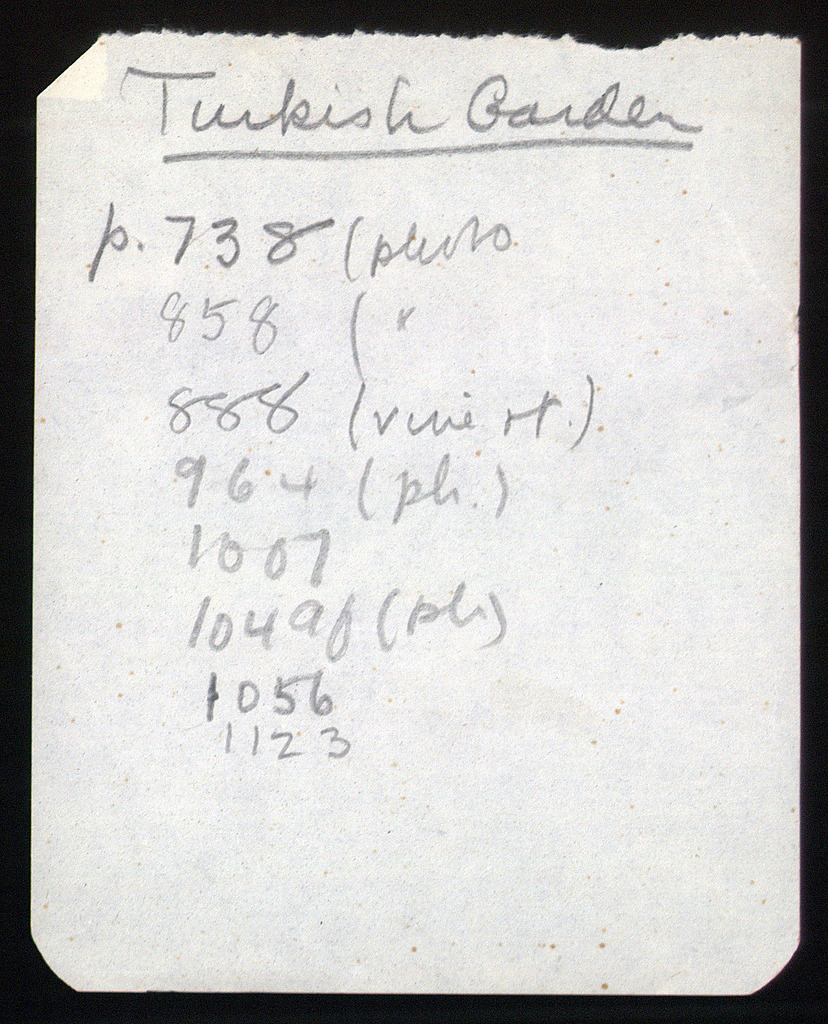 Turkish Garden
p. 738 (photo
858 ( "
888 (vine st.)
964 (ph.)
1007
1049f (ph)
1056
1123